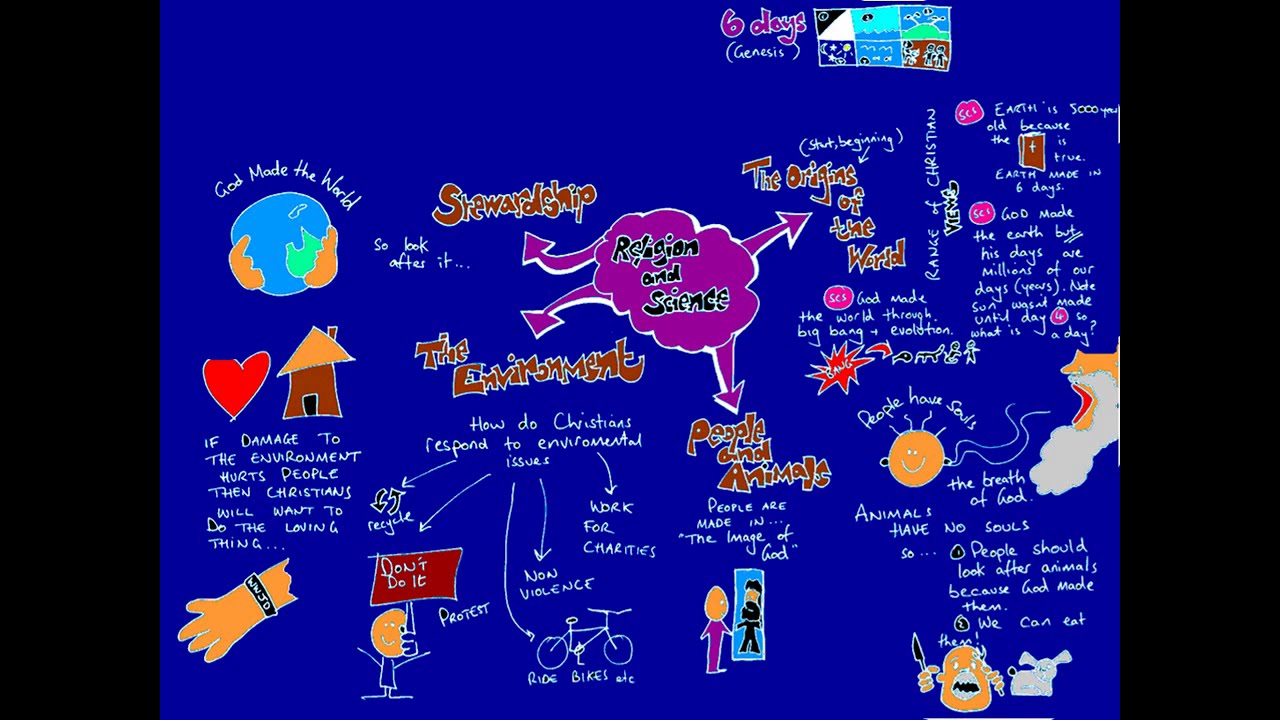 6 days
(Genesis)
1
2
3
Religion
and
Science
Stewardship
God Made the World
So look
after it...
The
Environment
How do Christians
respond to enviromental
issues
recycle
DON'T
DO IT
PROTEST
RIDE BIKES etc
NON
VIOLENCE
WORK
FOR
CHARITIES
IF DAMAGE TO
THE ENVIRONMENT
HURTS PEOPLE
THEN CHRISTIANS
WILL WANT TO
DO THE LOVING
THING...
WWJD
The Origins
of
the
World
(start, beginning)
RANGE of CHRISTIAN
VIEWS
SC1
EARTH is 5000 year
old because
the
is
true.
EARTH MADE IN
6 days.
SC2
GOD MADE
the earth but
his days are
millions of our
days (years). Note
son wasnt made
until day 4 so
what is a day?
SC3
God made
the world through
big bang + evolution.
BANG
People
and
Animals
PEOPLE ARE
MADE IN...
"The Image of
God"
People have souls
the breath
of God.
ANIMALS
HAVE NO SOULS
so...
1 People should
look after animals
because God made
them.
2 We can eat
them!